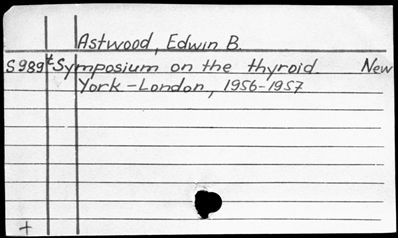 Astwood, Edwin B.
S989t Symposium on the thyroid. New
York-London, 1956-1957
+